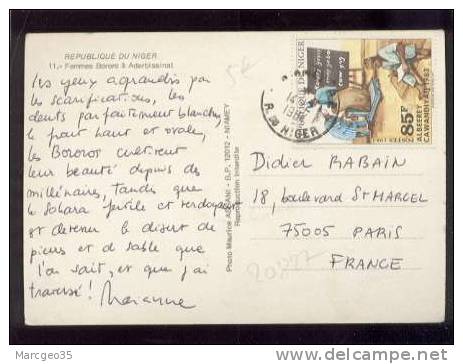 REPUBLIQUE DU NIGER
11.- Femmes Bororo à Aderbissinat
les yeux agrandis par
les scarifications, les
dents parfaitement blanches
le front haut et ovale,
les Bororos cultivent
leur beauté depuis des
millénaires, tandis que
le Sahara fertile et verdoyant
est devenu le désert de
pierres et de sable que
l'on sait, et que j'ai
traversé! Marianne
Photo Maurice ASCANI - B.P. 12012 - NIAMEY
Reproduction Interdite
5€
REPUBLIQUE DU NIGER
85F
ALBEEREY
CAWANDIYAŊ 1983
NIGER
Didier RABAIN
18, boulevard St MARCEL
75005 PARIS
FRANCE
www.delcampe.net
Margeo35